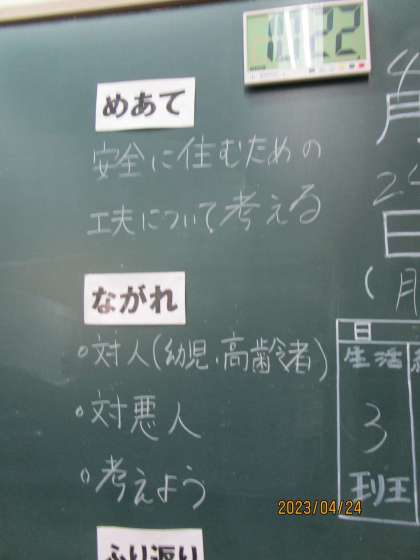 めあて
安全に住むための
工夫について考える
ながれ
○対人(幼児、高齢者)
○対悪人
○考えよう
ふり返り
4
月
日
(月
日
生活
3
班
2023/04/24